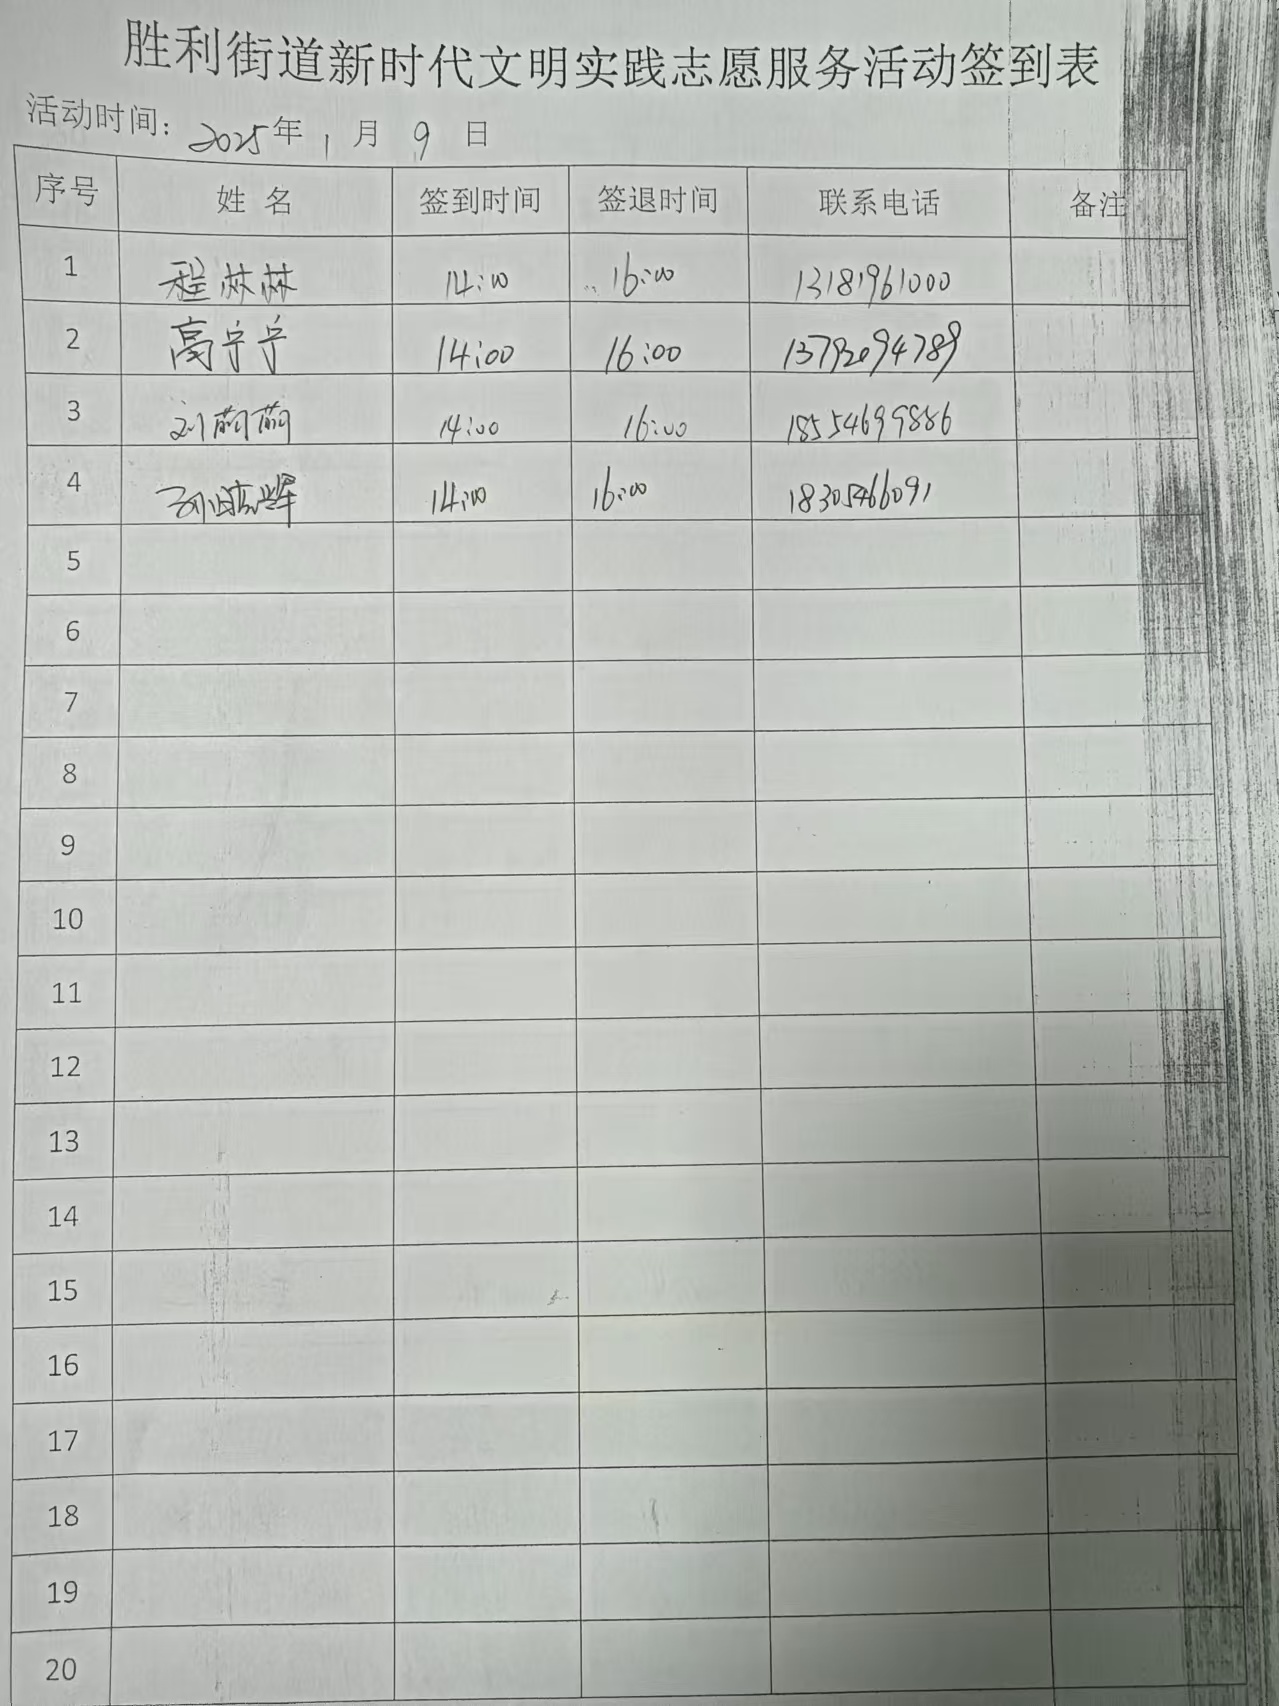 胜利街道新时代文明实践志愿服务活动签到表
活动时间：2025年1月9日
序号 姓名 签到时间 签退时间 联系电话 备注
1 程林林 14:00 16:00 13181961000
2 高宁宁 14:00 16:00 13792094789
3 刘 14:00 16:00 18554699886
4 14:00 16:00 18305466091
5
6
7
8
9
10
11
12
13
14
15
16
17
18
19
20